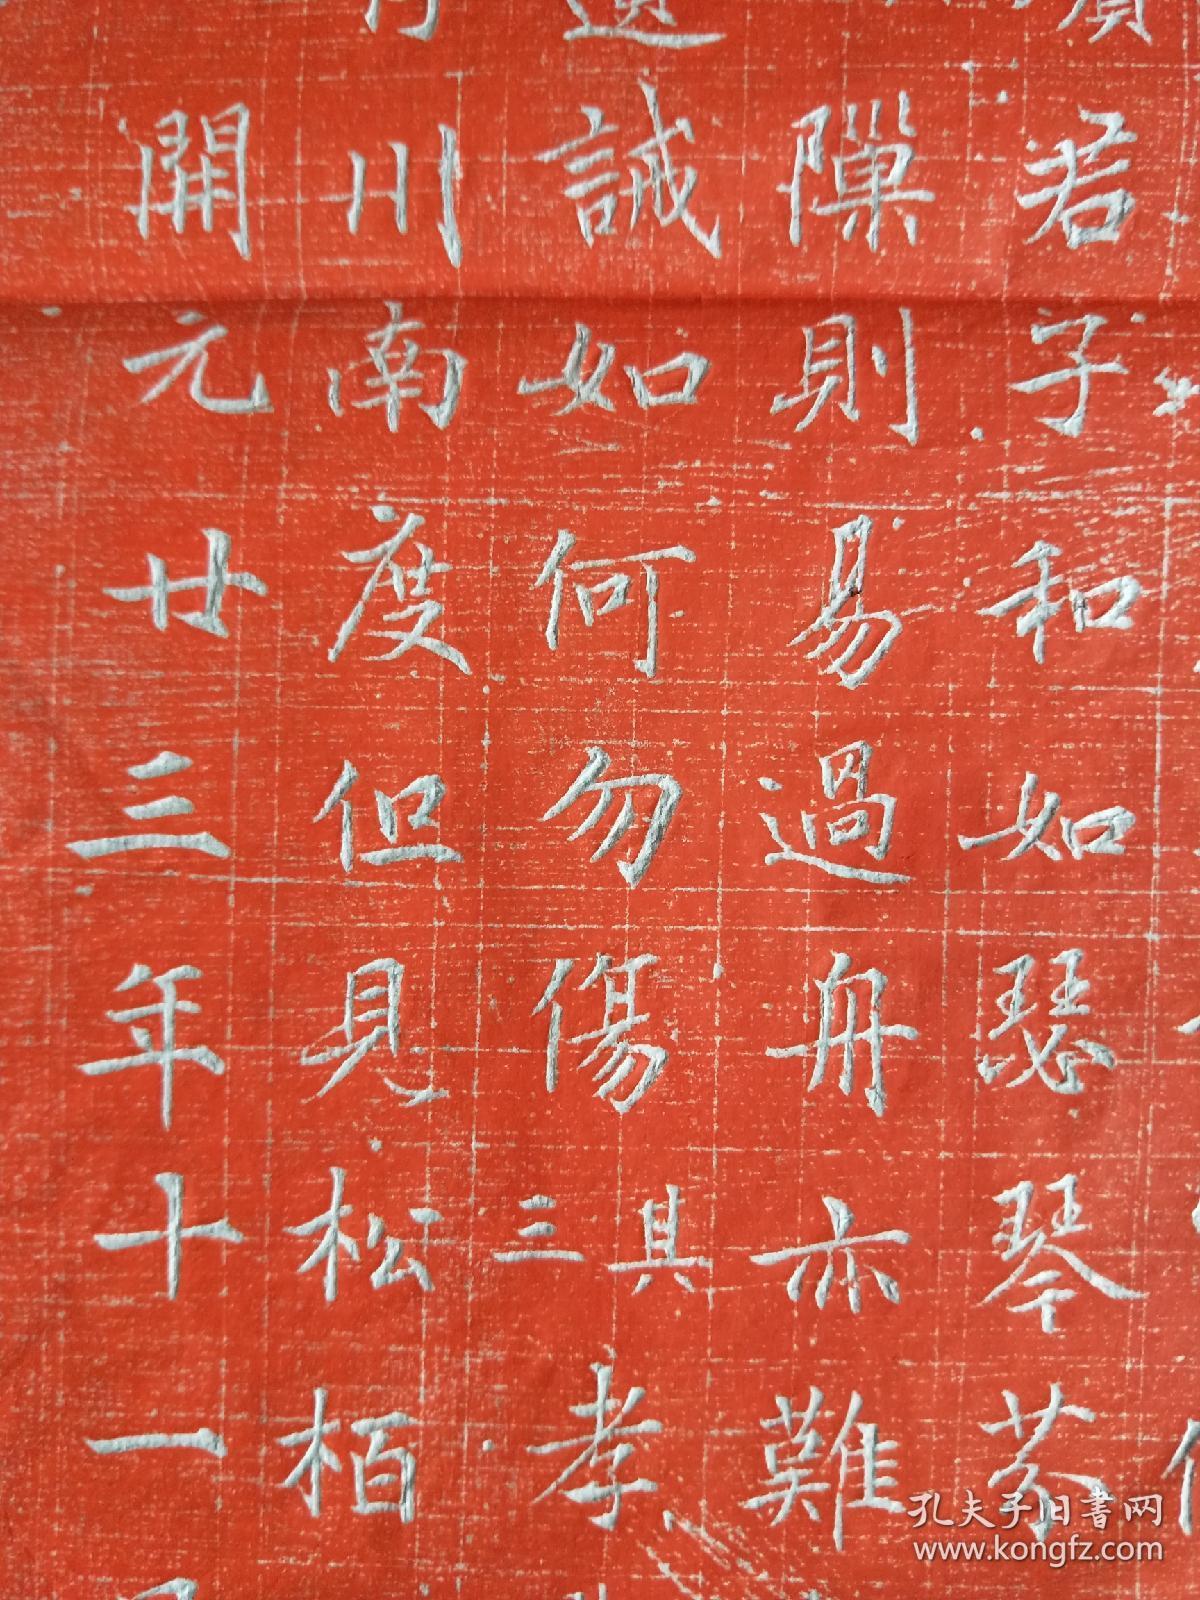 君子和如瑟琴芬
隙則易過舟亦難
誡如何勿傷其三孝
川南度但見松栢
開元廿三年十一
孔夫子旧書网
www.kongfz.com